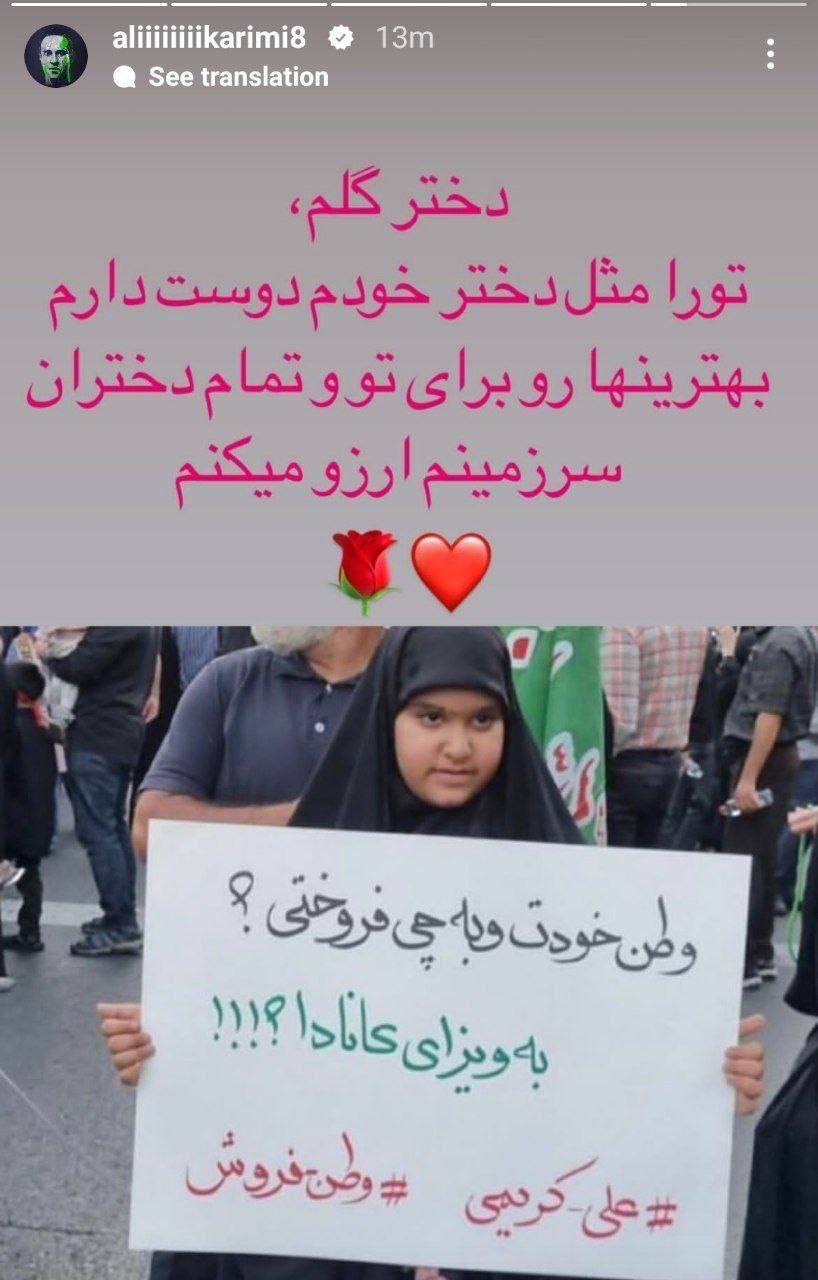 aliiiiiiiiikarimi8 13m
See translation
دختر گلم،
تورا مثل دختر خودم دوست دارم
بهترینها رو برای تو و تمام دختران
سرزمینم ارزو میکنم
🌹❤️
وطن خودت و به چی فروختی؟
به ویزای کانادا؟!!!
#علی-کریمی #وطن-فروش